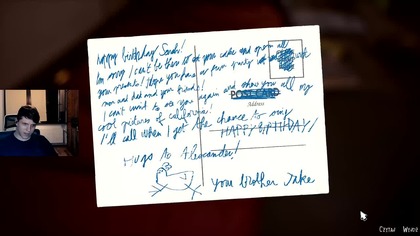 Happy birthday Sarah!
I'm sorry I can't be there to eat your cake and open all
your presents! I hope you have a fun party with
mom and dad and your friends!
I can't wait to see you again and show you all my
POSTCARD
cool pictures of California!
Address
I'll call when I get the chance to sing
HAPPY BIRTHDAY!
Hugs to Alexander!
Your brother Jake